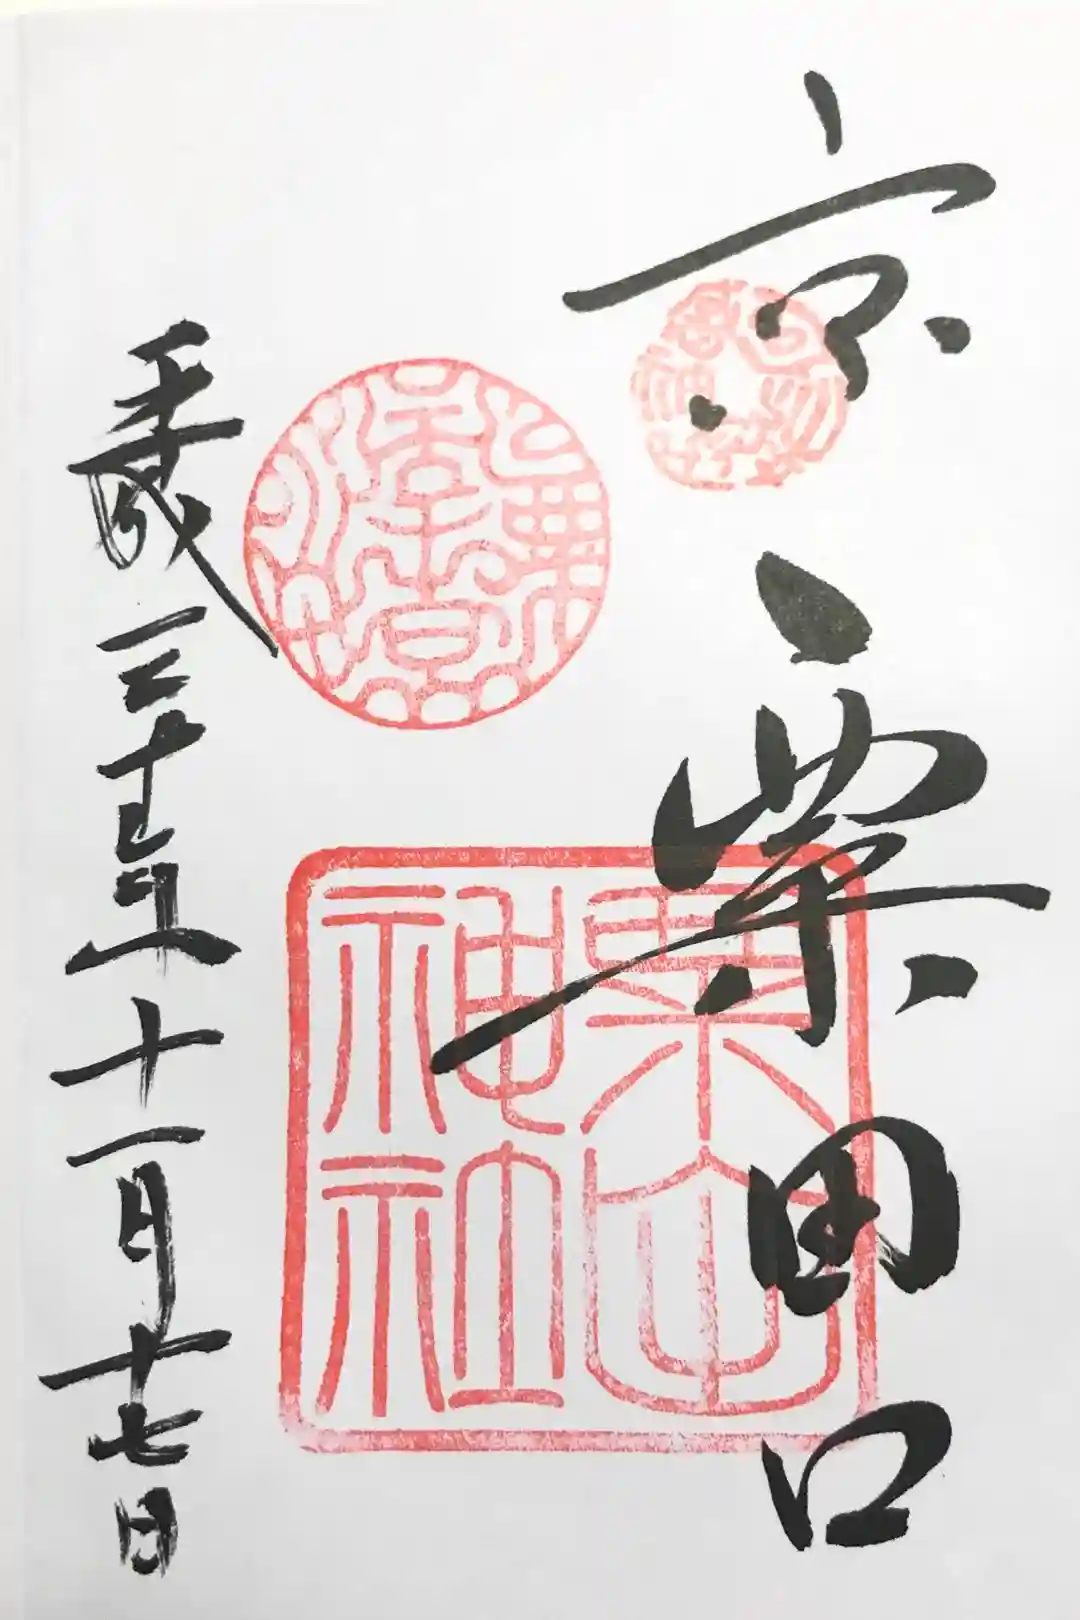 京・粟田口
粟田
神社
平成三十年十一月十七日